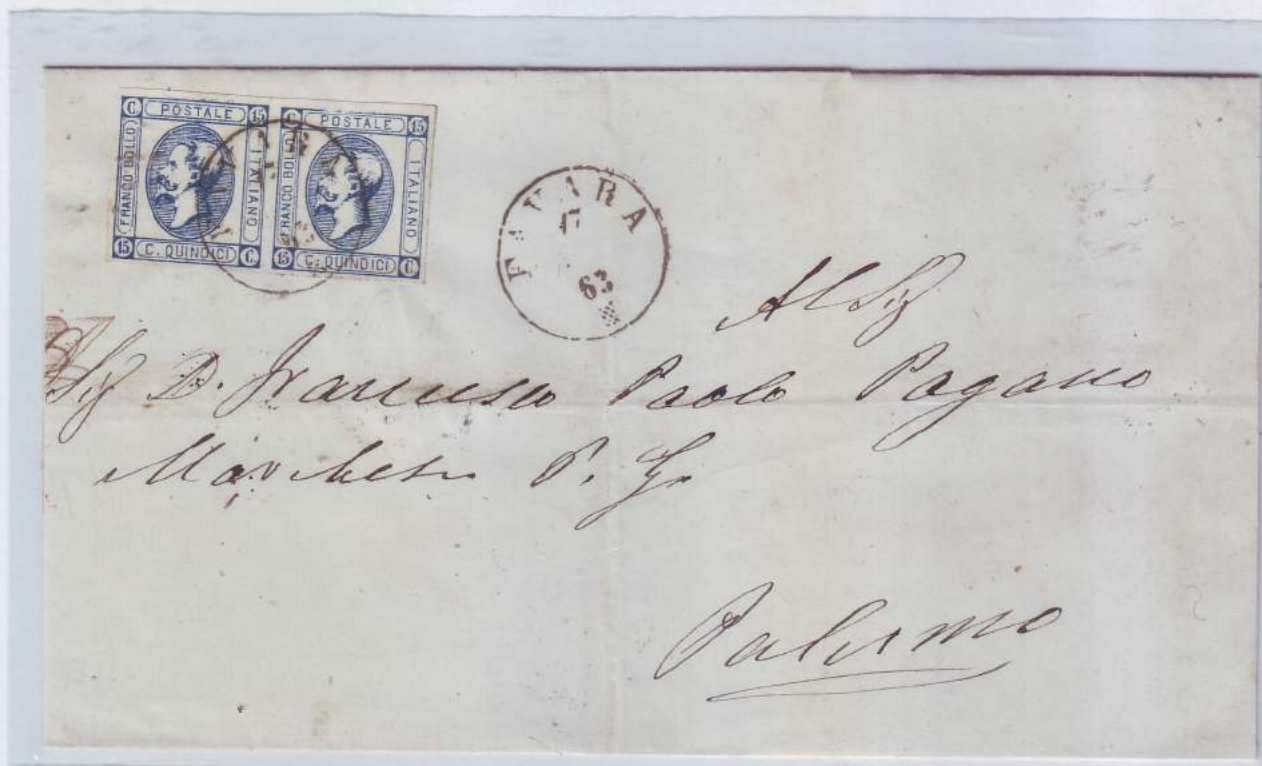 C POSTALE 15
FRANCO BOLLO
ITALIANO
15 C. QUINDICI C.
C POSTALE 15
FRANCO BOLLO
ITALIANO
15 C. QUINDICI C.
FAVARA
17
63
Al Sig
Sig D. Francesco Paolo Pagano
Marchese P. G.
Palermo